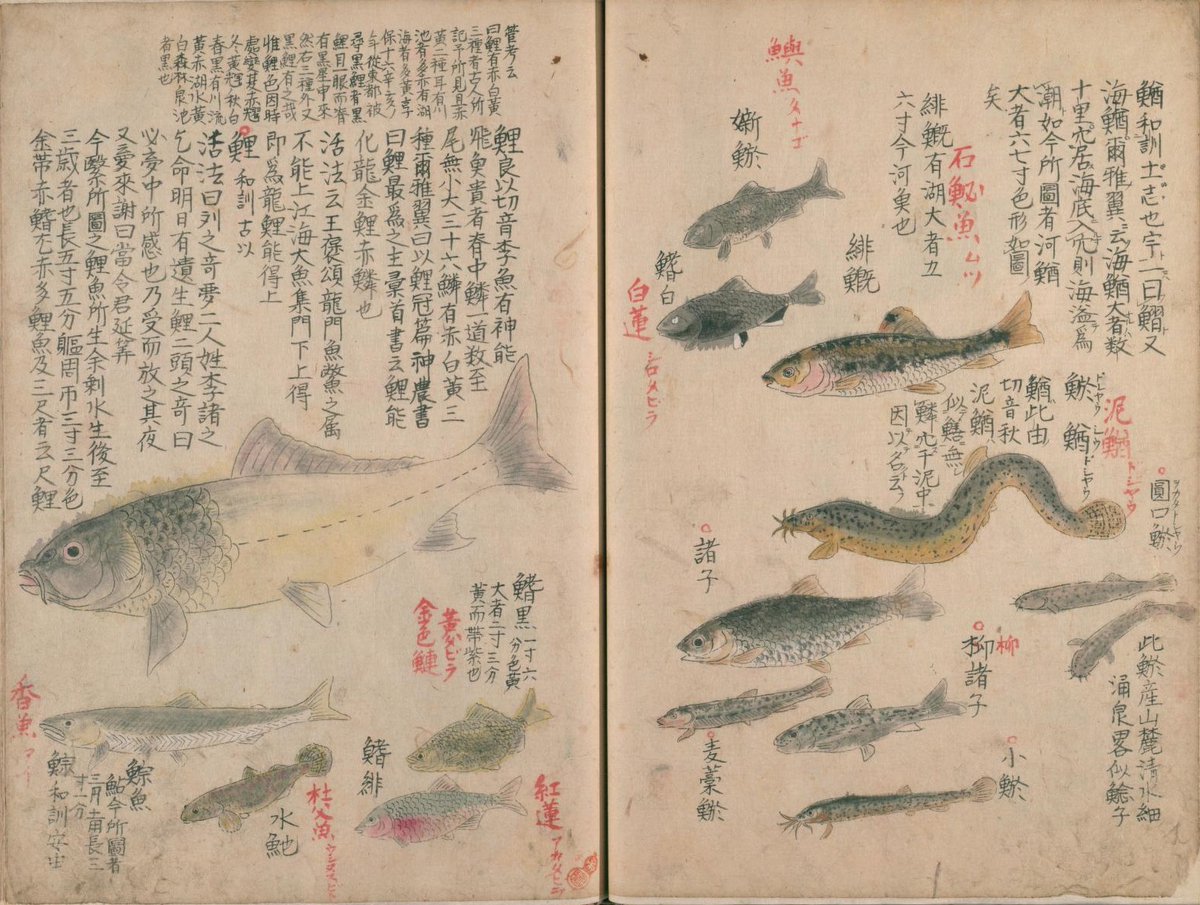 鰌和訓土志也字一曰鰼又
海鰌爾雅翼云海鰌大者数
十里穴居海底入穴則海溢為
潮如今所圖者河鰌
大者六七寸色形如圖
矣
石鮅魚ムツ
緋鱥有湖大者五
六寸今河魚也
緋鱥
鱮魚タナゴ
鰭白
白蓮
シロタビラ
泥鰌
ドシヤウ
鰌
ドシヤウ
鰌此由
切音秋
泥鰌
似鱔無
鱗穴于泥中
因以名云
圓口
諸子
柳
柳諸子
此
産山麓清水細
涌泉畧似鯰子
小
麦藁
管考云
曰鯉有赤白黄
三種者古人所
記予所見且赤
黄二種耳有川
池者多赤有湖
海者多黄享
保十六辛亥
年從東都被
尋黒鯉者黒
鯉目眼而脊
有黒星中來
然右三種外又
黒鯉有之哉
惟鯉色因時
處變夏赤耀
冬黄耀秋白
春黒有川流
黄赤湖水黄
白森林泉池
者黒也
鯉良以切音李魚有神能
飛魚貴者脊中鱗一道数至
尾無小大三十六鱗有赤白黄三
種爾雅翼曰以鯉冠篇神農書
曰鯉最為之主彙首書云鯉能
化龍金鯉赤鱗也
活法云王褒頌龍門魚鱉之属
不能上江海大魚集門下上得
即為龍鯉能得上
鯉 和訓古以
活法曰列之奇夢二人姓李諸之
乞命明日有遺生鯉二頭之奇曰
必夢中所感也乃受而放之其夜
又夢來謝曰當令君延筭
今繄所圖之鯉魚所生余剰水生後至
三歳者也長五寸五分軀周币三寸三分色
金帯赤鰭尤赤多鯉魚及三尺者云尺鯉
鰭黒 一寸六
分色黄
大者二寸三分
黄而帯紫也
黄タビラ
金色鰱
香魚
鯮魚
鮎今所圖者
三月土用長三
寸一分
和訓安由
水鮑
杜父魚
鰭緋
紅蓮
アカタビラ